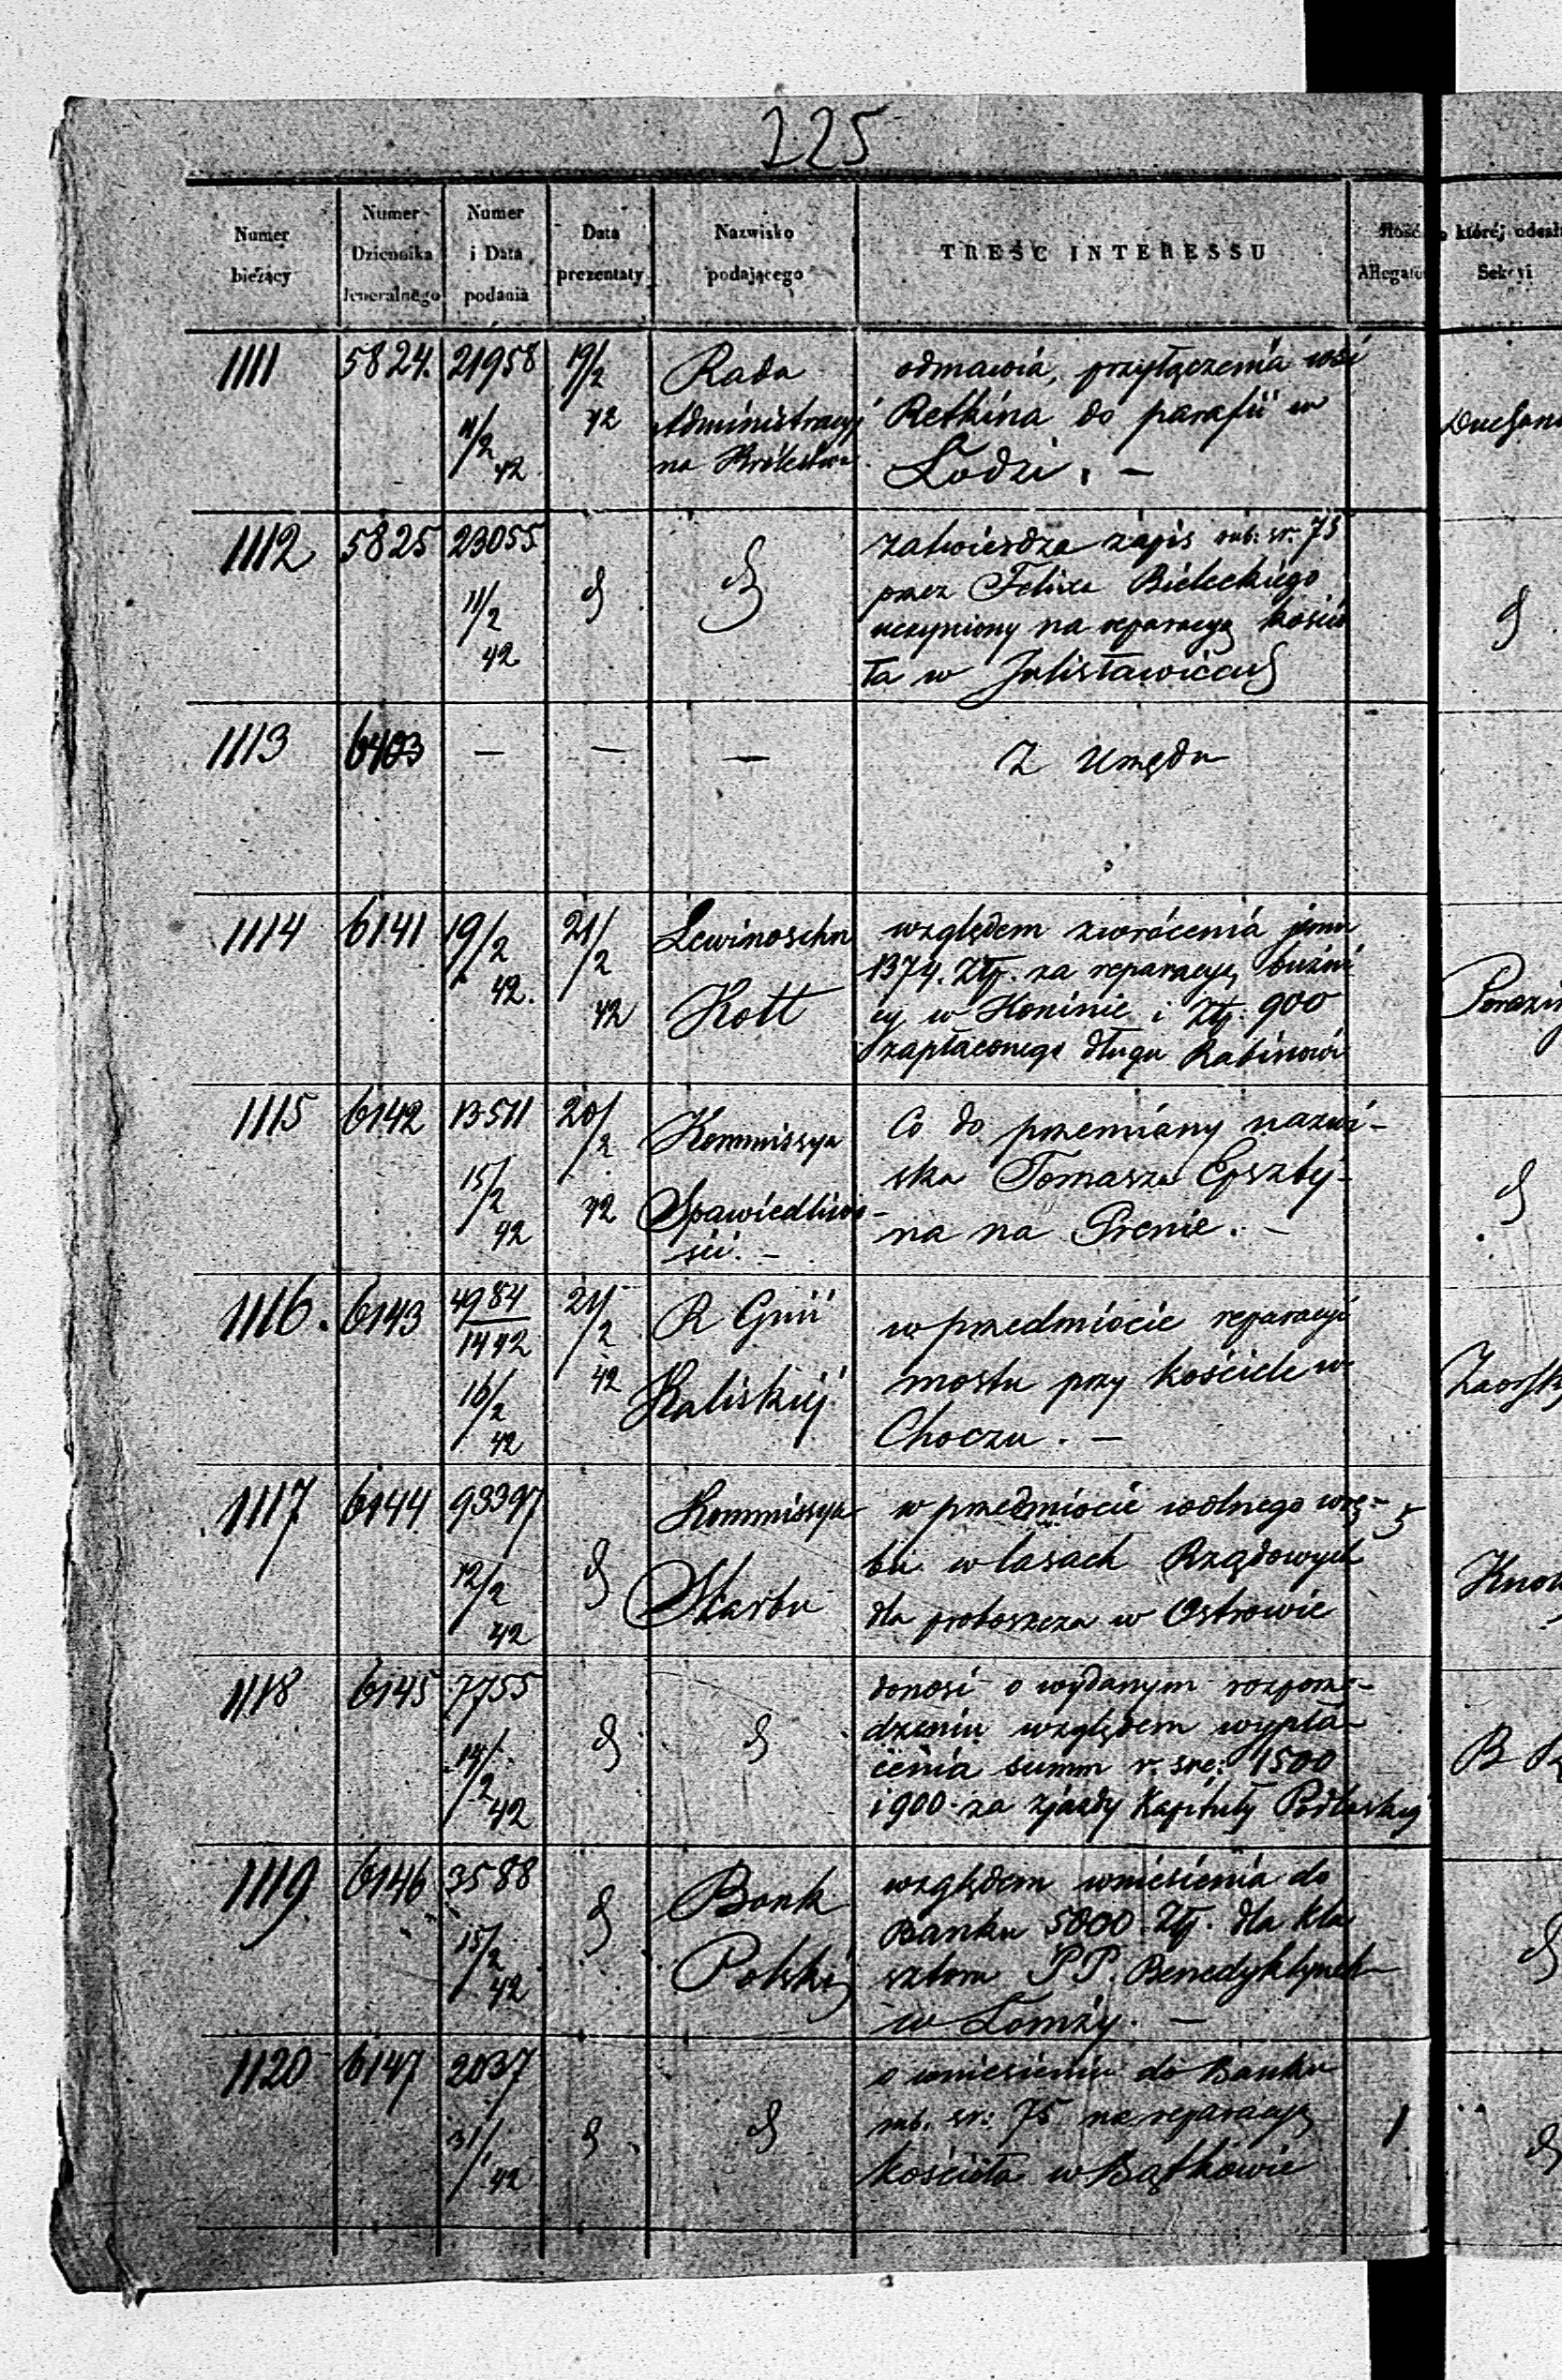 225
Numer bieżący
Numer Dziennika Jeneralnego
Numer i Data podania
Data prezentaty
Nazwisko podającego
TREŚĆ INTERESSU
Ilość Allegatów
której odesł
Sekcyi
1111 5824. 21958 11/2 42 19/2 42
Rada
Administracyj
na Królestwa
odmawia, przyłączenia wsi
Retkina do parafii w
Łodzi. —
Duchow
1112 5825 23055 11/2 42 d d
zatwierdza zapis rub. sr. 75
przez Felixa Bieleckiego
uczyniony na reparacyą kościo
ła w
d
1113 6403 — — —
Z Urzędu
1114 6141 19/2 42. 21/2 42
Lewinoschn
Kott
względem zwrócenia jemu
1374. Złp. za reparacyę bużni
cy w Koninie i Złp. 900
zapłaconego długu Rabinowi
1115 6142 13511 15/2 42 20/2 42
Kommissya
Spawiedliwo-
ści. —
Co do przemiany nazwi-
ska Tomasza Epsztej-
na na Prenie. —
d
1116. 6143 4984/1442 16/2 42 21/2 42
R Gnii
Kaliskiej
w przedmiocie reparacyi
mostu przy kościele w
Choczu. —
1117 6144 93397 12/2 42 d
Kommissya
Skarbu
w przedmiocie wolnego wrę-
bu w lasach Rządowych
dla proboszcza w Ostrowie
5
1118 6145 7755 14/2 42 d d
donosi o wydanym rozporzą-
dzeniu względem wypła-
cenia summ r. sre: 1500
i 900 za zjazdy Kapituły Podlaskiej
B
1119 6146 3588 15/2 42 d
Bank
Polski
względem wniesienia do
Banku 5000 Złp. dla kla
sztoru PP. Benedyktynek
w Łomży. —
d
1120 6147 2037 31/1 42 d d
o wniesieniu do Banku
rub. sr: 75 na reparacyą
kościoła w Bątkowie
1
d